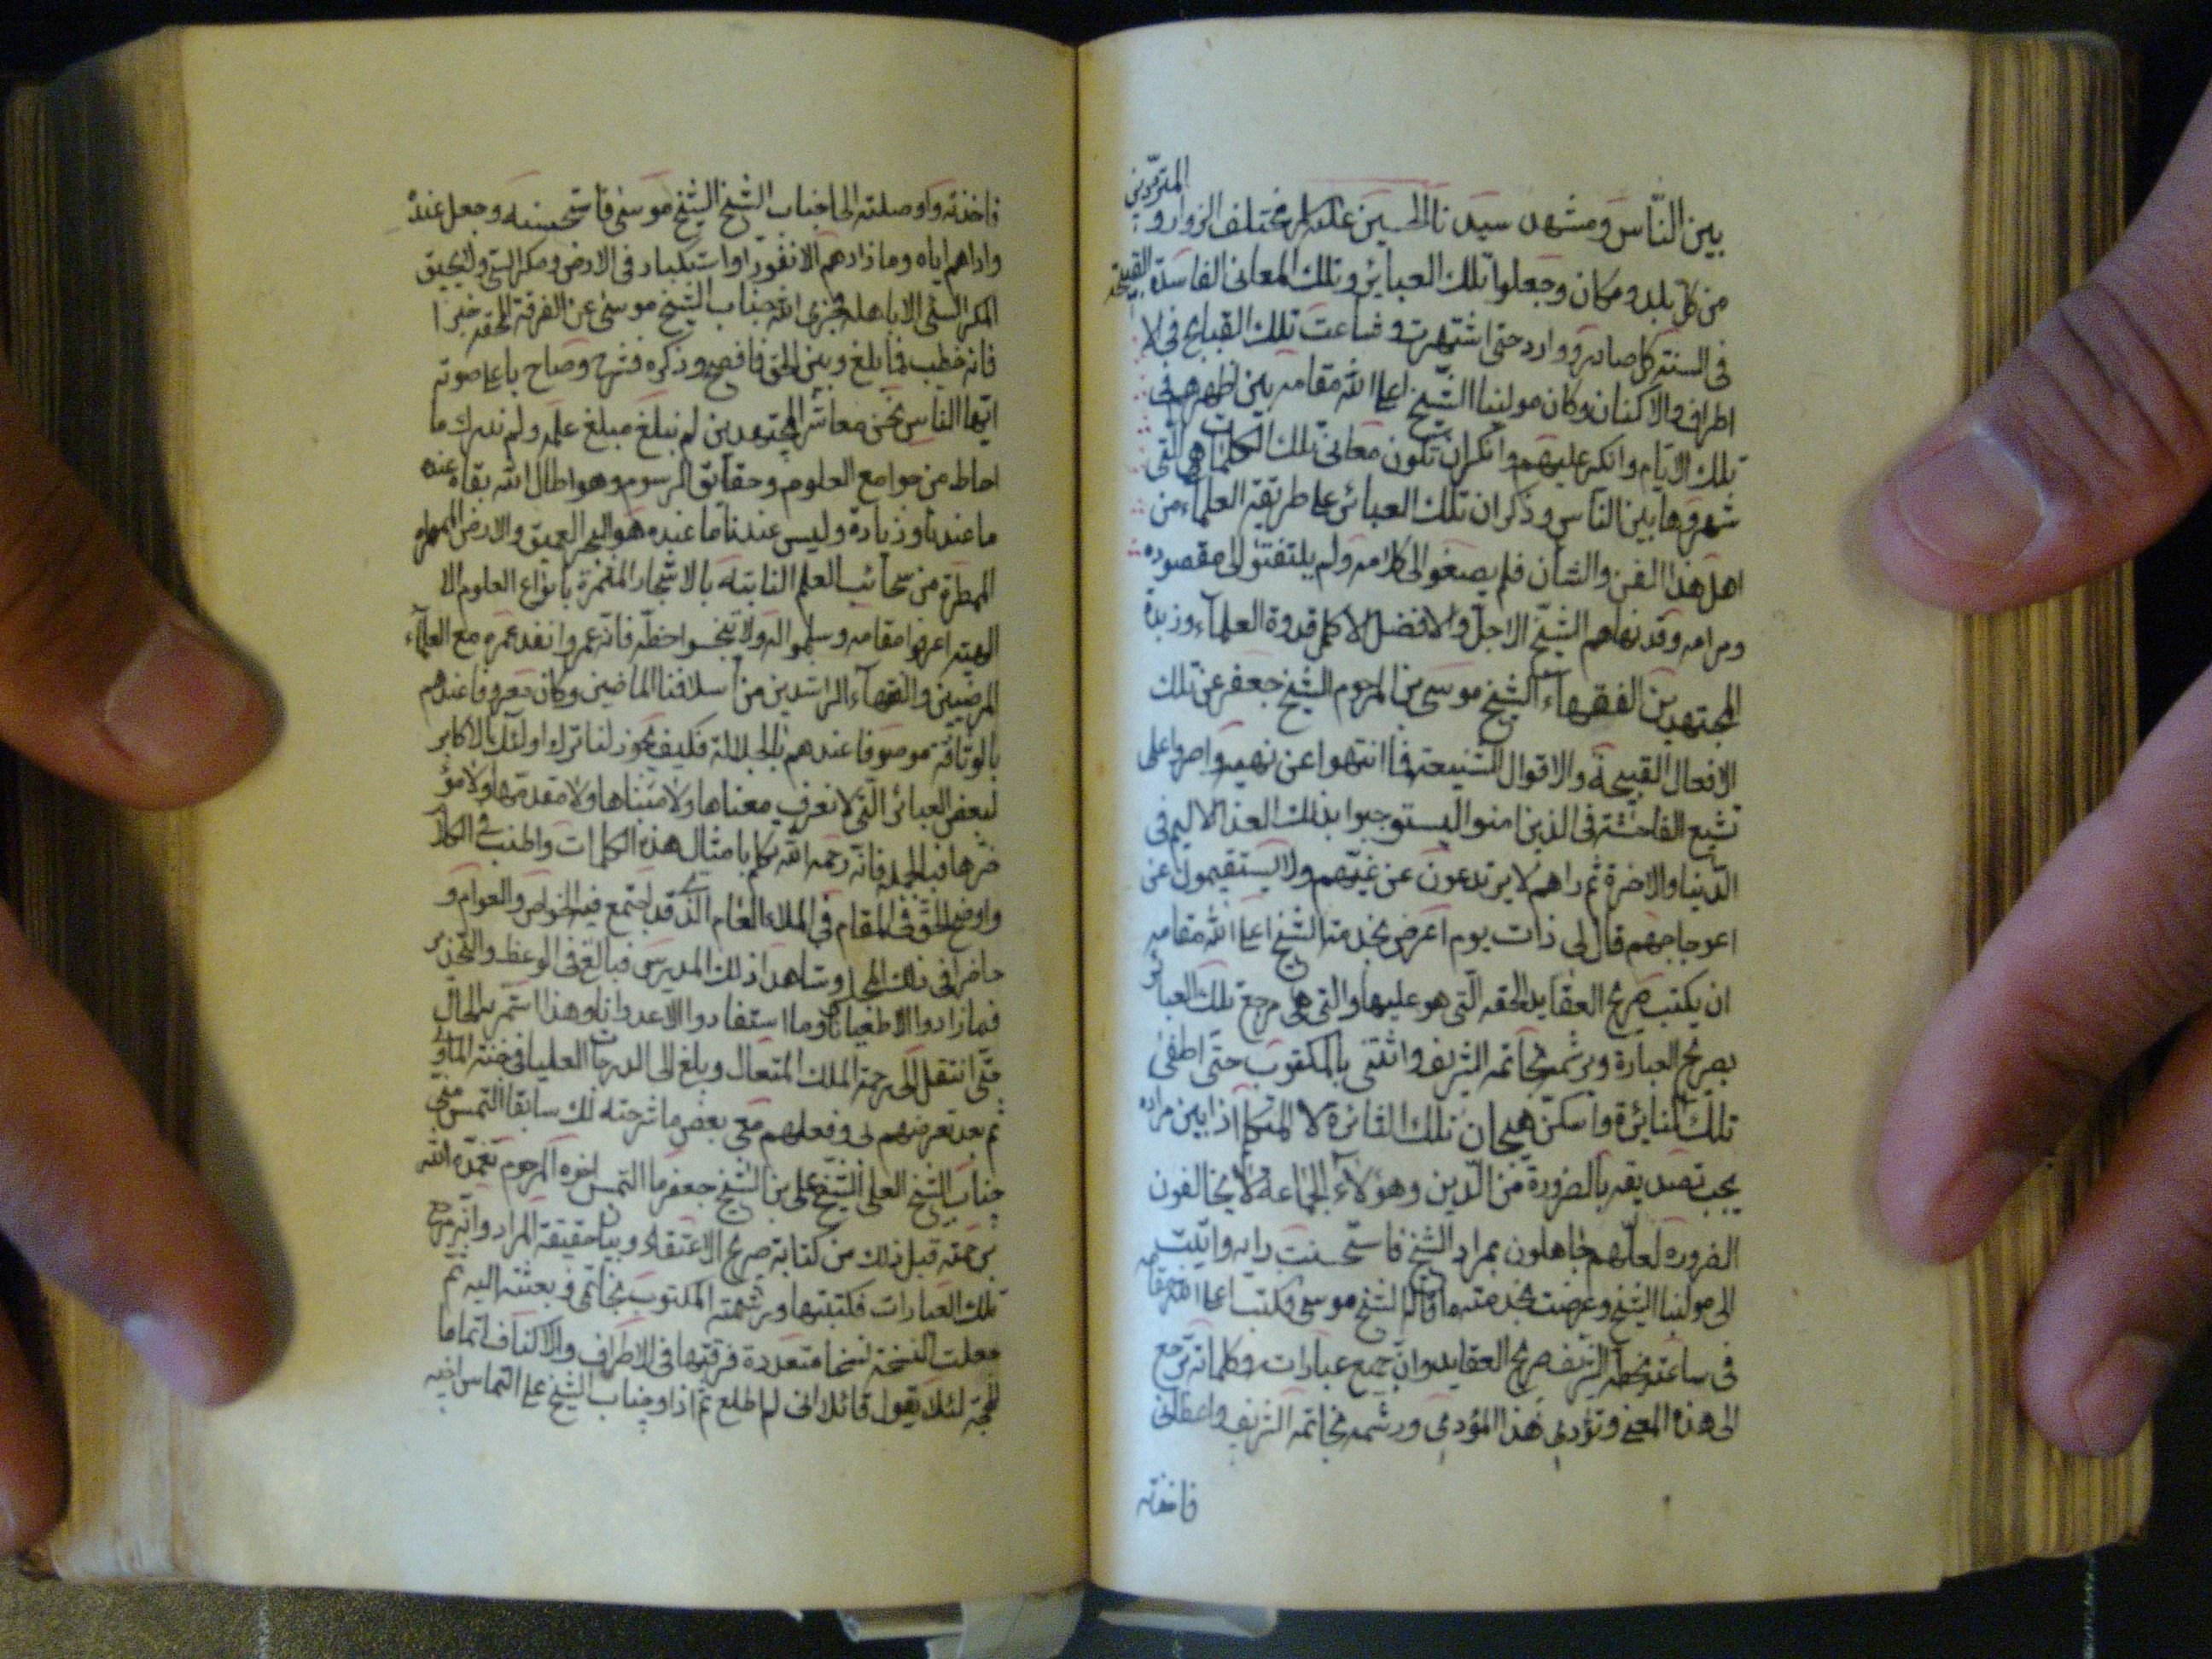 بين الناس ومشهد سيدنا الحسين عليه مختلف الزوار و المترددين
من كل بلد ومكان وجعلوا تلك العبائر وتلك المعاني الفاسدة القبيحة
في السنة كل صادر ووارد حتى اشتهرت وشاعت تلك القبايح في الا
اطراف والاكنان وكان مولينا الشيخ اعلى الله مقامه بين اظهرهم في
تلك الايام وانكر عليهم وانكر ان تكون معاني تلك الكلمات هي التي
شهروها بين الناس وذكر ان تلك العبائر على طريقة العلماء من
اهل هذا الفن والشان فلم يصغوا الى كلامه ولم يلتفتوا الى مقصوده
ومرامه وقد نهاهم الشيخ الاجل والافضل الاكمل قدوة العلماء وزبدة
المجتهدين الفقهاء الشيخ موسى بن المرحوم الشيخ جعفر عن تلك
الافعال القبيحة والاقوال الشنيعة فما انتهوا عن نهيه واصروا على
تشيع الفاحشة في الذين امنوا ليستوجبوا بذلك العذاب الاليم في
الدنيا والاخرة ثم راهم لا يرتدعون عن غيهم ولا يستقيمون عن
اعوجاجهم قال لي ذات يوم اعرض بخدمة الشيخ اعلى الله مقامه
ان يكتب صريح العقايد الحقه التي هو عليها والتي هي مرجع تلك العبائر
بصريح العبارة ويرشمه بخاتمه الشريف وائتني بالمكتوب حتى اطفئ
تلك النائرة واسكن هيجان تلك الفائرة لان المتكلم اذا بين مراده
يجب تصديقه بالضرورة من الدين وهؤلاء الجماعة لا يخالفون
الضرورة لعلهم جاهلون بمراد الشيخ فاستحسنت رايه واتيت
الى مولينا الشيخ وعرضت بخدمته ما قاله الشيخ موسى فكتب اعلى الله مقامه
في ساعته بخطه الشريف صريح العقايد وان جميع عباراته وكلماته ترجع
الى هذه المعنى وتؤدي هذا المؤدى ورشمه بخاتمه الشريف واعطاني
فاخذته
فاخذته واوصلته الى جناب الشيخ الشيخ موسى فاستحسنه وجعل عنده
واراهم اياه وما زادهم الا نفورا واستكبارا في الارض ومكر السئ ولا يحيق
المكر السئ الا باهله فجزى الله جناب الشيخ موسى عن الفرقة المحقه خيرا
فانه خطب فابلغ وبين الحق فافصح وذكره فشرح وصاح باعلى صوته
ايها الناس نحن معاشر المجتهدين لم نبلغ مبلغ علمه ولم ندرك ما
احاط من جوامع العلوم وحقائق الرسوم وهو اطال الله بقاه عنده
ما عندنا وزيادة وليس عندنا ما عنده هو البحر العميق والارض
الممطرة من سحائب العلم النابتة بالاشجار المثمرة بانواع العلوم الا
الهية اعرفوا مقامه وسلموا له ولا تبخسوا حظه فانه عمر وانفد عمره مع العلماء
المرضيين والفقهاء الراشدين من اسلافنا الماضين وكان معروفا عندهم
بالوثاقة موصوفا عندهم بالجلالة فكيف يجوز لنا ترك اولئك الاكابر
لبعض العبائر التي لا نعرف معناها ولا مبناها ولا مقدمها ولا مؤ
خرها فبالجملة فانه رحمه الله تكلم بامثال هذه الكلمات واطنب في الكلام
واوضح الحق في المقام في الملاء العام الذي قد اجتمع فيه الخواص والعوام و
حاضرا في ذلك المجلس وشاهدا ذلك المدرس فبالغ في الوعظ والتحذير
فما زادوا الا طغيانا وما استفادوا الا عدوانا وهذا استمر به الحال
حتى انتقل الى رحمة الملك المتعال وبلغ الى الدرجات العليا في جنة الماوى
ثم بعد تعرضهم لي وفعلهم معي بعض ما شرحته لك سابقا التمس مني
جناب الشيخ العلي الشيخ علي بن الشيخ جعفر ما التمس اخوه المرحوم تغمده الله
برحمته قبل ذلك من كتابة صريح الاعتقاد وبيان حقيقة المراد وانه مرجع
تلك العبارات فكتبتها ورشمته المكتوب بخاتمي وبعثته اليه ثم
جعلت النسخة نسخا متعددة فرقتها في الاطراف والاكناف اتماما
للحجة لئلا يقول قائلا اني لم اطلع ثم اذا وجناب الشيخ على التماس اخيه